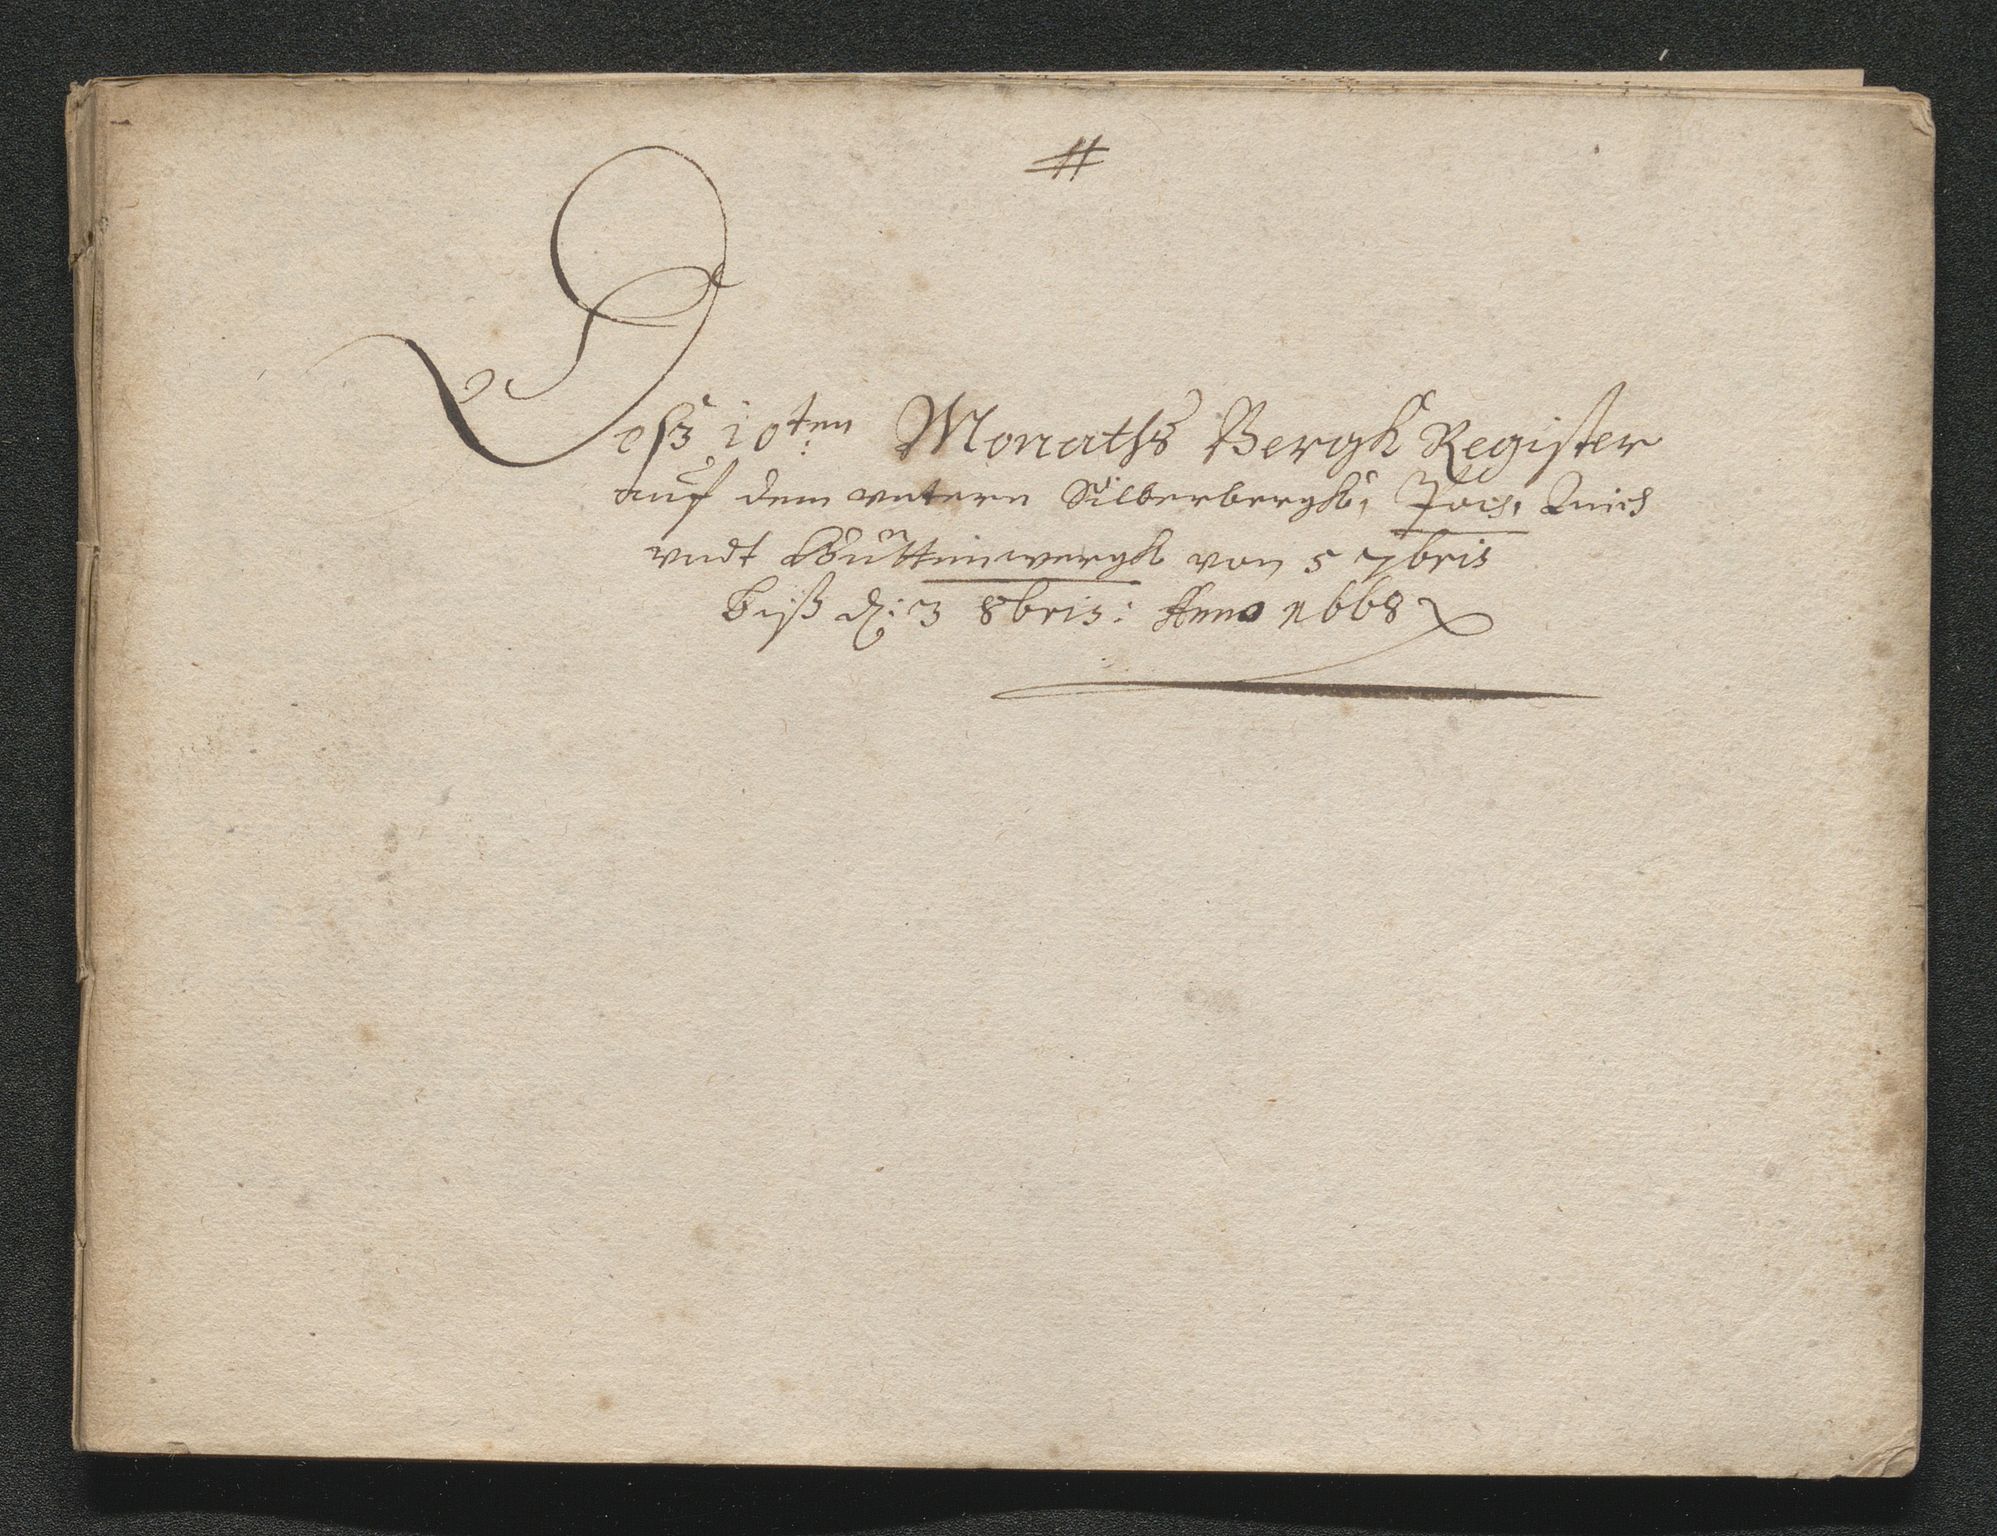 #
Deß 10ten: Monaths Bergk Register
auf dem untern Silberbergk, Poch, Quick
vndt Hüttenwergk von 5 7bris
biß d: 3 8bris: Anno 1668